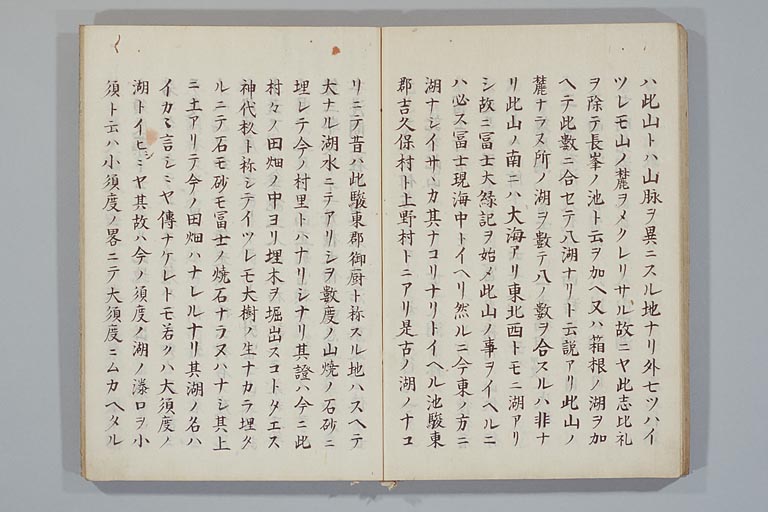 ハ此山トハ山脉ヲ異ニスル地ナリ外七ツハイ
ツレモ山ノ麓ヲメクレリサル故ニヤ此志比礼
ヲ除テ長峯ノ池ト云ヲ加ヘ又ハ箱根ノ湖ヲ加
ヘテ此數ニ合セテ八湖ナリト云説アリ此山ノ
麓ナラヌ所ノ湖ヲ數テ八ノ數ヲ合スルハ非ナ
リ此山ノ南ニハ大海アリ東北西トモニ湖アリ
シ故ニ冨士大縁記ヲ始メ此山ノ事ヲイヘルニ
ハ必ス冨士現海中トイヘリ然ルニ今東ノ方ニ
湖ナシイサヽカ其ナコリナリトイヘル池駿東
郡吉久保村ト上野村トニアリ是古ノ湖ノナコ
リニテ昔ハ此駿東郡御厨ト称スル地ハスヘテ
大ナル湖水ニテアリシヲ數度ノ山焼ノ石砂ニ
埋レテ今ノ村里トハナリシナリ其證ハ今ニ此
村々ノ田畑ノ中ヨリ埋木ヲ堀出スコトタエス
神代杉ト称シテイツレモ大樹ノ生ナカラ埋タ
ルニテ石モ砂モ冨士ノ焼石ナラヌハナシ其上
ニ土アリテ今ノ田畑ハナレルナリ其湖ノ名ハ
イカヽ言シミヤ傳ナケレトモ若クハ大須度ノ
湖トイヒシミヤ其故ハ今ノ須度ノ湖ノ瀑口ヲ小
須ト云ハ小須度ノ畧ニテ大須度ニムカヘタル